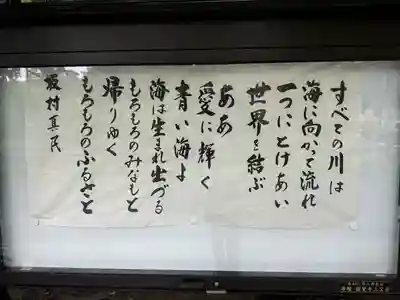 すべての川は
海に向かって流れ
一つにとけあい
世界を結ぶ
ああ
愛に輝く
青い海よ
海は生まれ出づる
もろもろのみなもと
帰りゆく
もろもろのふるさと
坂村真民